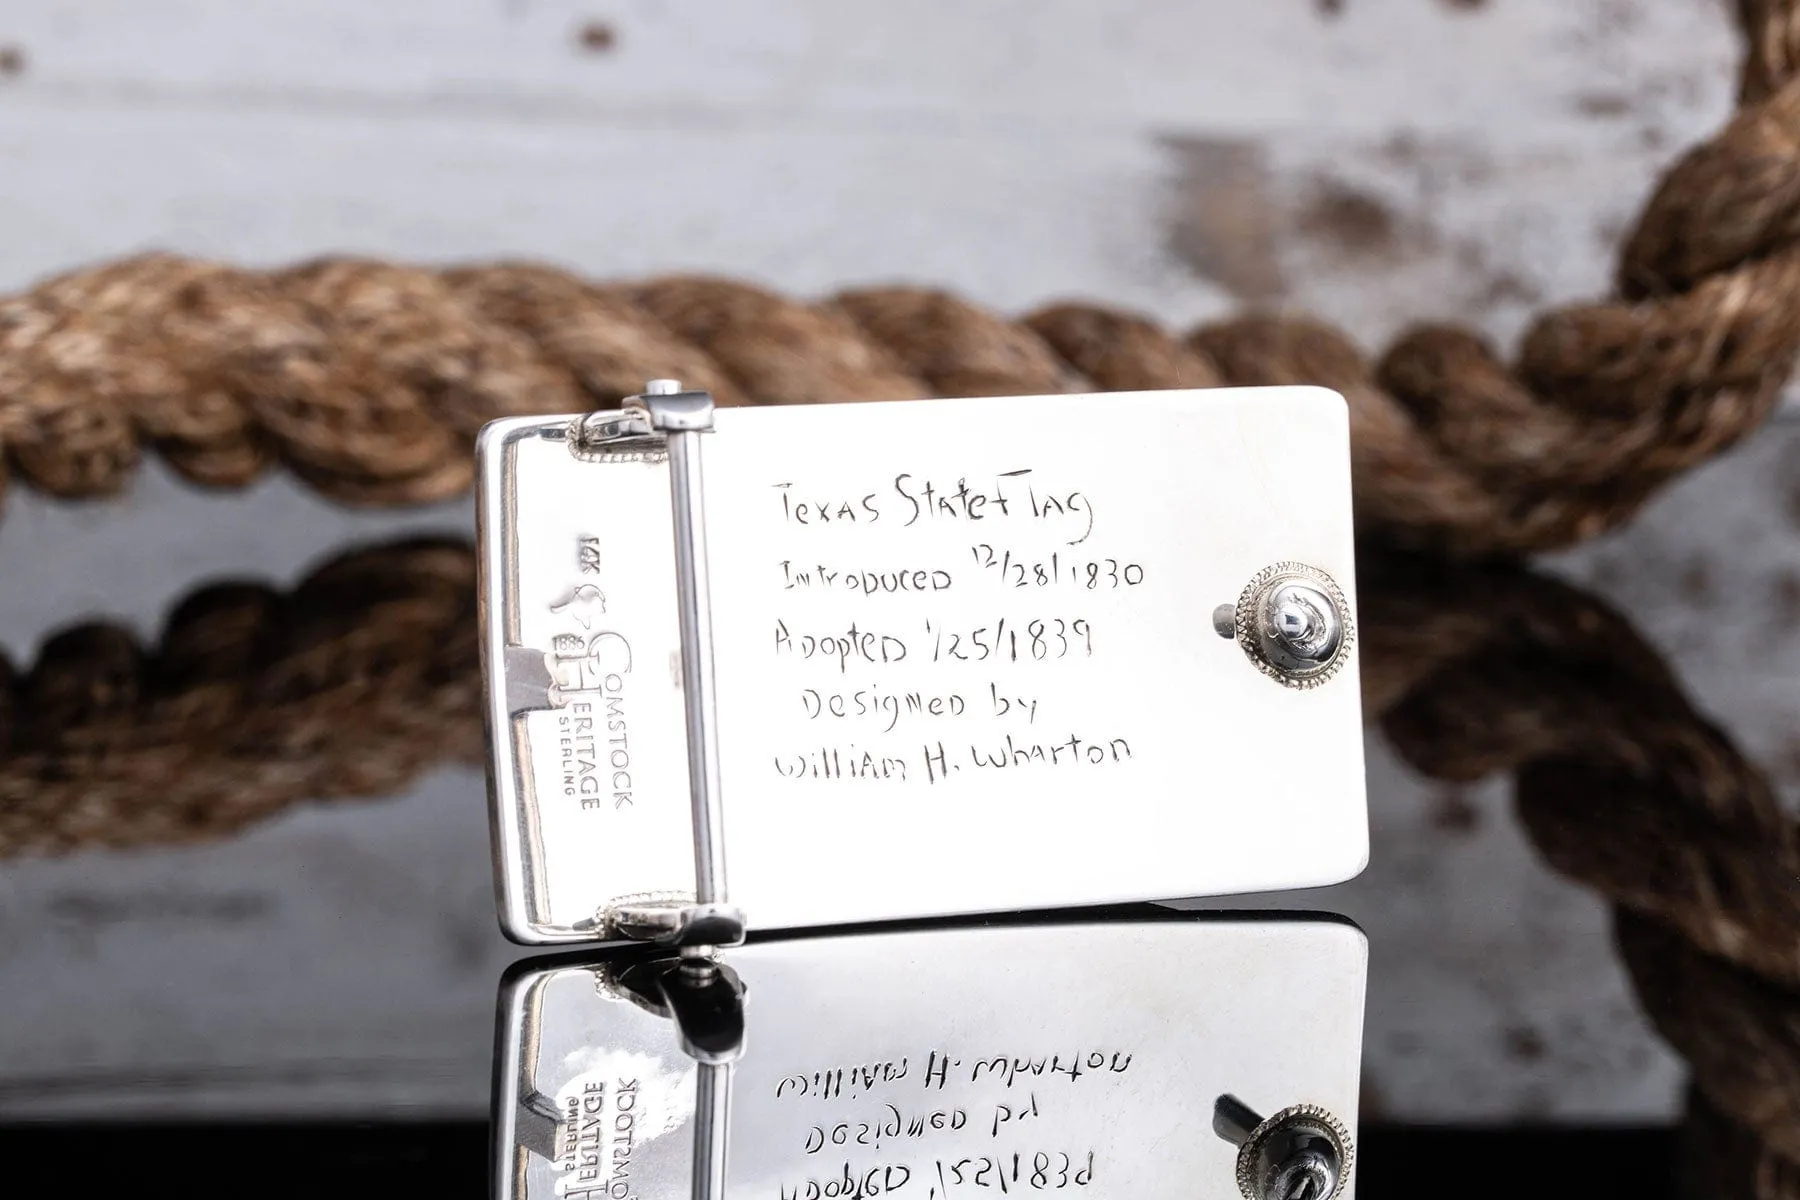 Texas State Flag
Introduced 12/28/1830
Adopted 1/25/1839
Designed by
William H. Wharton
14K
1888
COMSTOCK
HERITAGE
STERLING